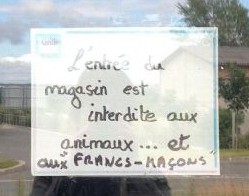 L'entrée du
magasin est
interdite aux
animaux... et
aux "FRANCS-MAÇONS"